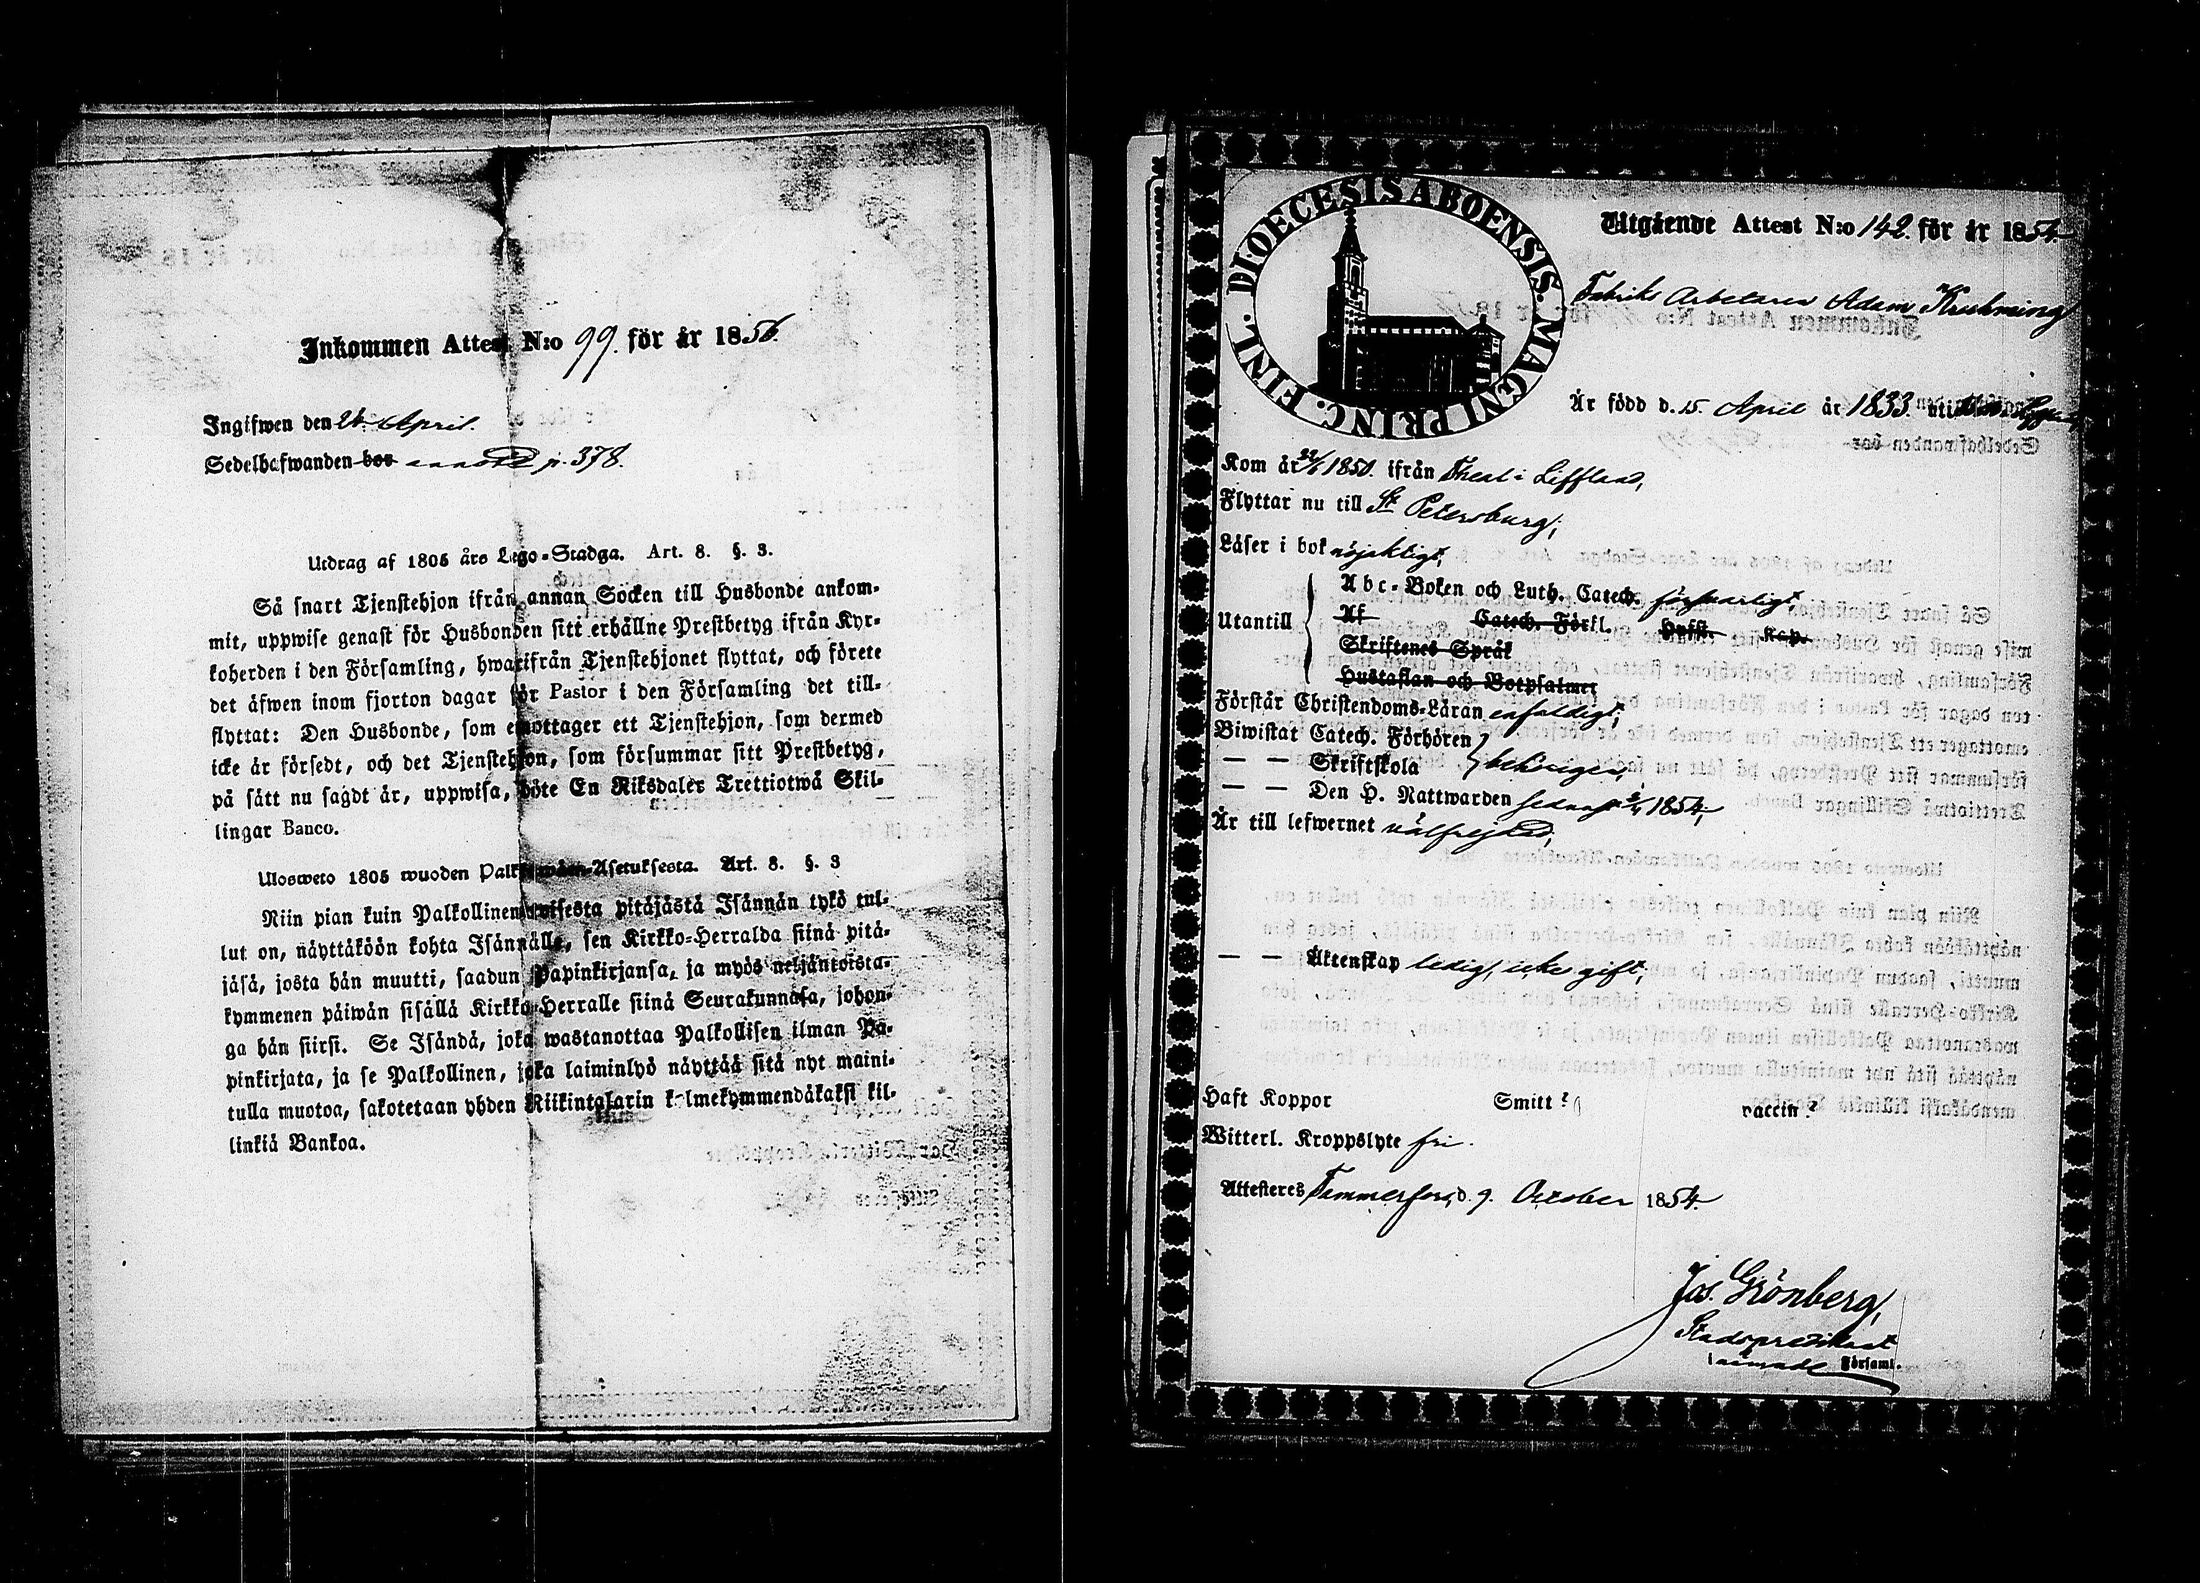 Inkommen Attest N:o 99. för år 1856.
Ingifwen den 24 April.
Sedelhafwanden bor annotd p. 378.
Utdrag af 1805 års Lego-Stadga. Art. 8. §. 3.
Så snart Tjenstehjon ifrån annan Socken till Husbonde ankom-
mit, uppwise genast för Husbonden sitt erhållne Prestbetyg ifrån Kyr-
koherden i den Församling, hwarifrån Tjenstehjonet flyttat, och förete
det äfwen inom fjorton dagar för Pastor i den Församling det till-
flyttat: Den Husbonde, som emottager ett Tjenstehjon, som dermed
icke är försedt, och det Tjenstehjon, som försummar sitt Prestbetyg,
på sätt nu sagdt är, uppwisa, böte En Riksdaler Trettiotwå Skil-
lingar Banco.
Ulosweto 1805 wuoden Palkollisten-Asetuksesta. Art. 8. §. 3
Niin pian kuin Palkollinen toisesta pitäjästä Isännän tykö tul-
lut on, näyttäköön kohta Isännälle, sen Kirkko-Herralda siinä pitä-
jäsä, josta hän muutti, saadun Papinkirjansa, ja myös neljäntoista-
kymmenen päiwän sisällä Kirkko-Herralle siinä Seurakunnasa, johon-
ga hän siirsi. Se Isändä, joka wastanottaa Palkollisen ilman Pa-
pinkirjata, ja se Palkollinen, joka laiminlyö näyttää sitä nyt maini-
tulla muotoa, sakotetaan yhden Riikintalarin kolmekymmendäkaksi kil-
linkiä Bankoa.
DIOECESIS ABOENSIS. MAGNI PRINC. FINL.
Utgående Attest N:o 142. för år 1854.
Fabriks Arbetaren Adam Kruhming
Är född d. 15. April år 1833. uti
Kom år 22/6 1850. ifrån Theal i Liffland,
Flyttar nu till St Petersburg;
Läser i bok nöjaktigt,
Utantill Abc-Boken och Luth. Catech. försvarligt,
Af Catech. Förkl. Hufst. Kap.
Skriftenes Språk
Hustaflan och Botpsalmer
Förstår Christendoms-Läran enfaldigt,
Biwistat Catech. Förhören
— — Skriftskola behörigen,
— — Den H. Nattwarden sednast 1854,
Är till lefwernet välfrejdad,
— — Äktenskap ledig, icke gift,
Haft Koppor Smitt? vaccin?
Witterl. Kroppslyte fri.
Attesteres Tammerfors, d. 9. October 1854.
Jos. Grönberg,
Stadspredikant
i nämnde Församl.